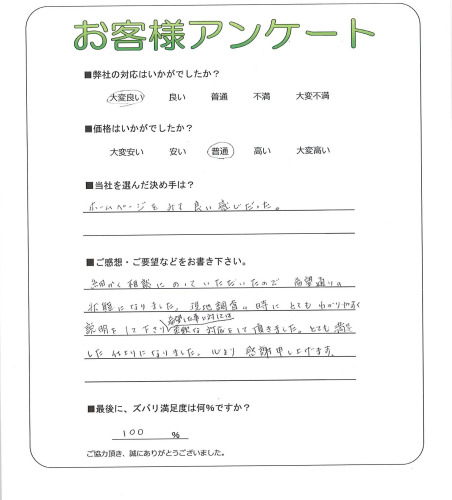 お客様アンケート
■弊社の対応はいかがでしたか?
大変良い 良い 普通 不満 大変不満
■価格はいかがでしたか?
大変安い 安い 普通 高い 大変高い
■当社を選んだ決め手は?
ホームページをみて良い感じだった。
■ご感想・ご要望などをお書き下さい。
細かく相談にのっていただいたので 希望通りの
状態になりました。現地調査の時にとてもわかりやすく
希望仕事に対しては
説明をして下さり 柔軟な対応をして頂きました。とても満足
した仕上りになりました。心より 感謝申し上げます。
■最後に、ズバリ満足度は何%ですか?
100 %
ご協力頂き、誠にありがとうございました。